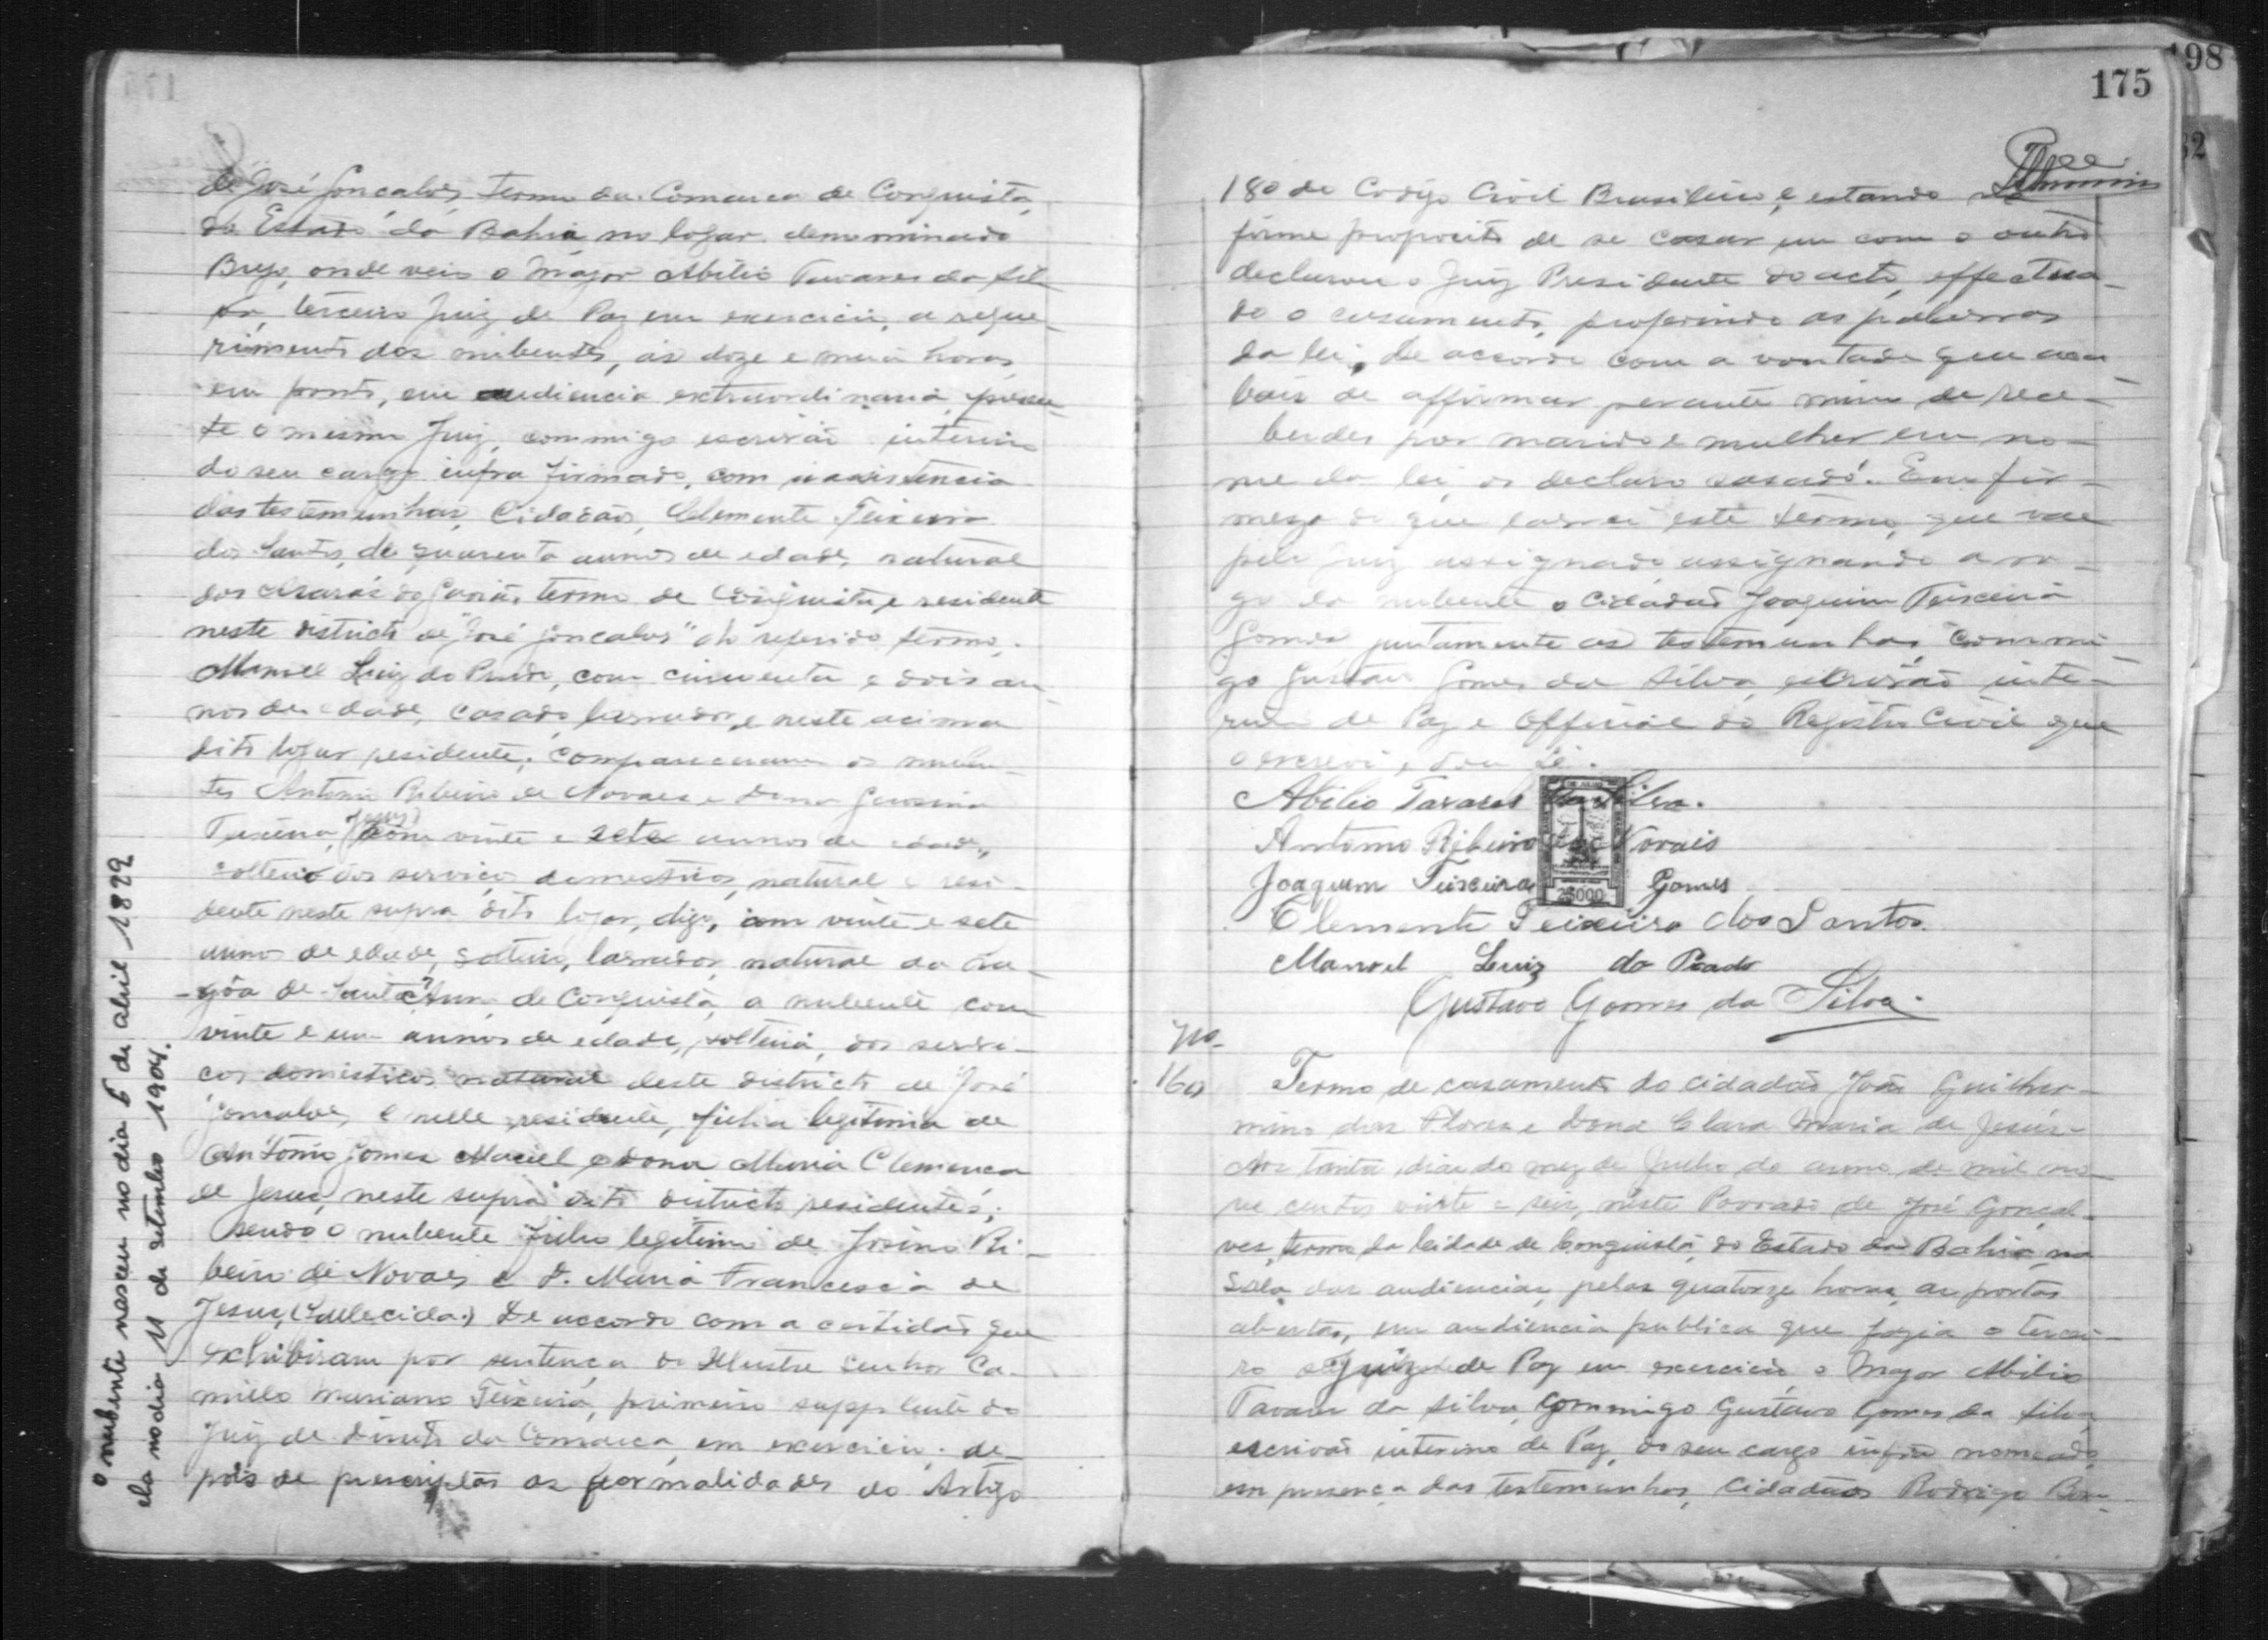 de José Gonçalves, termo da Comarca de Conquista,
do Estado da Bahia no logar denominado
Brejo, onde veio o Major Abilio Tavares da Sil-
va, terceiro Juiz de Paz em exercicio, a reque-
rimento dos nubentes, ás doze e meia horas
em ponto, em audiencia extraordinaria, presen-
te o mesmo Juiz, commigo escrivão interino
do seu cargo infra firmado, com a assistencia
das testemunhas, Cidadão, Clemente Teixeira
dos Santos, de quarenta annos de edade, natural
dos termo de Conquista, e residente
neste districto de "José Gonçalves" do referido termo,
Manoel Luiz do Prado, com cincoenta e dois an-
nos de edade, casado, lavrador, e neste acima
dito logar residente; compareceram os nuben-
tes Antonio Ribeiro de Novaes e Dona
Teixeira, (Jesus) com vinte e sete annos de edade,
solteira dos serviços domesticos, natural e resi-
dente neste supra dito logar, digo, com vinte e sete
annos de edade, solteiro, lavrador, natural da La-
gôa de Santa Anna de Conquista, a nubente com
vinte e um annos de edade, solteira, dos servi-
ços domesticos natural deste districto de "José
Gonçalves, e nelle residente, filha legitima de
Antonio Gomes Maciel e dona Maria Clemença
de Jesus, neste supra dito districto residentes;
sendo o nubente filho legitimo de Josino Ri-
beiro de Novaes e D. Maria Francesca de
Jesus, (fallecida.) De accordo com a certidão que
exhibiram por sentença do Illustre Senhor Ca-
millo Mariano Teixeira, primeiro supplente do
Juiz de Direito da Comarca, em exercicio; de-
pois de prescriptas as formalidades do Artigo
o nubente nasceu no dia 6 de abril 1899
ela no dia 11 de setembro 1904.
175
98
32
180 do Codigo Civil Brasileiro, e estando no
firme proposito de se casar um com o outro
declarou o Juiz Presidente do acto, effectua-
do o casamento, proferindo as palavras
da lei, De accordo com a vontade que aca-
bais de affirmar perante mim de rece-
berdes por marido e mulher em no-
me da lei os declaro casados. Em fir-
meza do que lavrei este termo, que vae
pelo Juiz assignado, assignando a ro-
go da nubente o cidadão Joaquim Teixeira
Gomes juntamente as testemunhas, commi-
go Gustavo Gomes da Silva, escrivão inte-
rino de Paz e Official do Registro Civil que
o escrevi e dou fé.
Abilio Tavares da Silva.
Antonio Ribeiro de Novais
Joaquim Teixeira Gomes
2$000
Clemente Teixeira dos Santos.
Manoel Luiz do Prado
Gustavo Gomes da Silva.
No.
160 Termo de casamento do cidadão João Guilher-
mino das Flores e Dona Clara Maria de Jesús-
Aos trinta dias do mez de Julho do anno de mil no-
ve centos vinte e seis, neste Povoado de José Gonçal-
ves, termo da Cidade de Conquista, do Estado da Bahia, na
Sala das audiencias, pelas quatorze horas, as portas
abertas, em audiencia publica que fazia o tercei-
ro Juiz de Paz em exercicio o Major Abilio
Tavares da Silva, Commigo Gustavo Gomes da Silva,
escrivão interino de Paz, do seu cargo infra nomeado,
em presença das testemunhas, Cidadãos Rodrigo